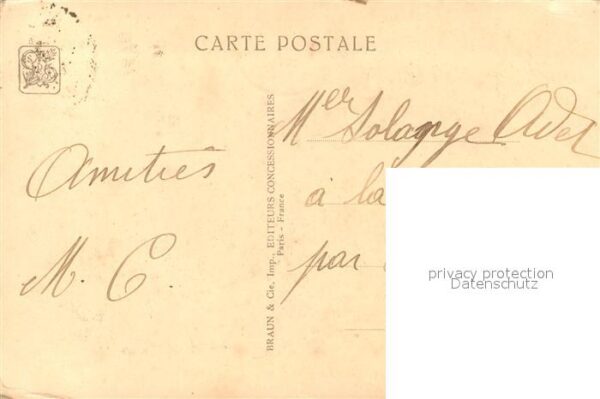 CARTE POSTALE
Amitiés
M. C.
BRAUN & Cie, Imp., EDITEURS CONCESSIONNAIRES
Paris - France
Solange
à la
par
privacy protection
Datenschutz